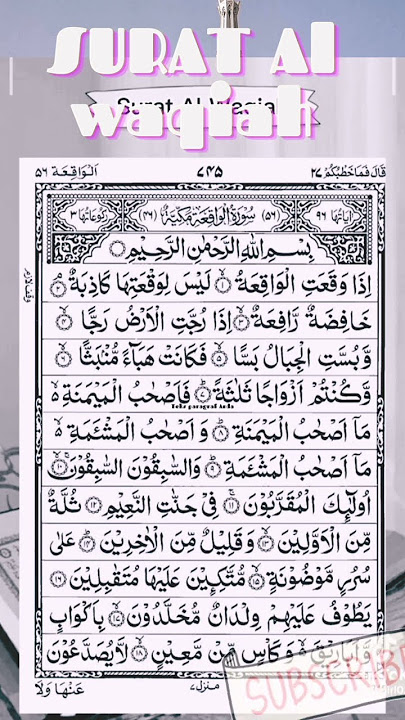 SURAT Al
waqiah
Surat Al Waqia
الْوَاقِعَة ٥٦
٧٤٥
قَالَ فَمَا خَطْبُكُمْ ٢٧
اٰيَاتُهَا ٩٦
(٥٦) سُوْرَةُ الْوَاقِعَةِ مَكِّيَّةٌ (٤٦)
رُكُوْعَاتُهَا ٣
بِسْمِ اللّٰهِ الرَّحْمٰنِ الرَّحِيْمِ
اِذَا وَقَعَتِ الْوَاقِعَةُ ۝١ لَيْسَ لِوَقْعَتِهَا كَاذِبَةٌ ۝٢
خَافِضَةٌ رَّافِعَةٌ ۝٣ اِذَا رُجَّتِ الْاَرْضُ رَجًّا ۝٤
وَّبُسَّتِ الْجِبَالُ بَسًّا ۝٥ فَكَانَتْ هَبَآءً مُّنْۢبَثًّا ۝٦
وَّكُنْتُمْ اَزْوَاجًا ثَلٰثَةً ۝٧ فَاَصْحٰبُ الْمَيْمَنَةِ ۵
مَآ اَصْحٰبُ الْمَيْمَنَةِ ۝٨ وَاَصْحٰبُ الْمَشْـَٔمَةِ ۵
مَآ اَصْحٰبُ الْمَشْـَٔمَةِ ۝٩ وَالسّٰبِقُوْنَ السّٰبِقُوْنَ ۝١٠
اُولٰٓئِكَ الْمُقَرَّبُوْنَ ۝١١ فِيْ جَنّٰتِ النَّعِيْمِ ۝١٢ ثُلَّةٌ
مِّنَ الْاَوَّلِيْنَ ۝١٣ وَقَلِيْلٌ مِّنَ الْاٰخِرِيْنَ ۝١٤ عَلٰى
سُرُرٍ مَّوْضُوْنَةٍ ۝١٥ مُّتَّكِـِٕيْنَ عَلَيْهَا مُتَقٰبِلِيْنَ ۝١٦
يَطُوْفُ عَلَيْهِمْ وِلْدَانٌ مُّخَلَّدُوْنَ ۝١٧ بِاَكْوَابٍ
وَّاَبَارِيْقَ ۵ وَكَاْسٍ مِّنْ مَّعِيْنٍ ۝١٨ لَّا يُصَدَّعُوْنَ
عَنْهَا وَلَا
منزل ٧
SUBSCRIBE